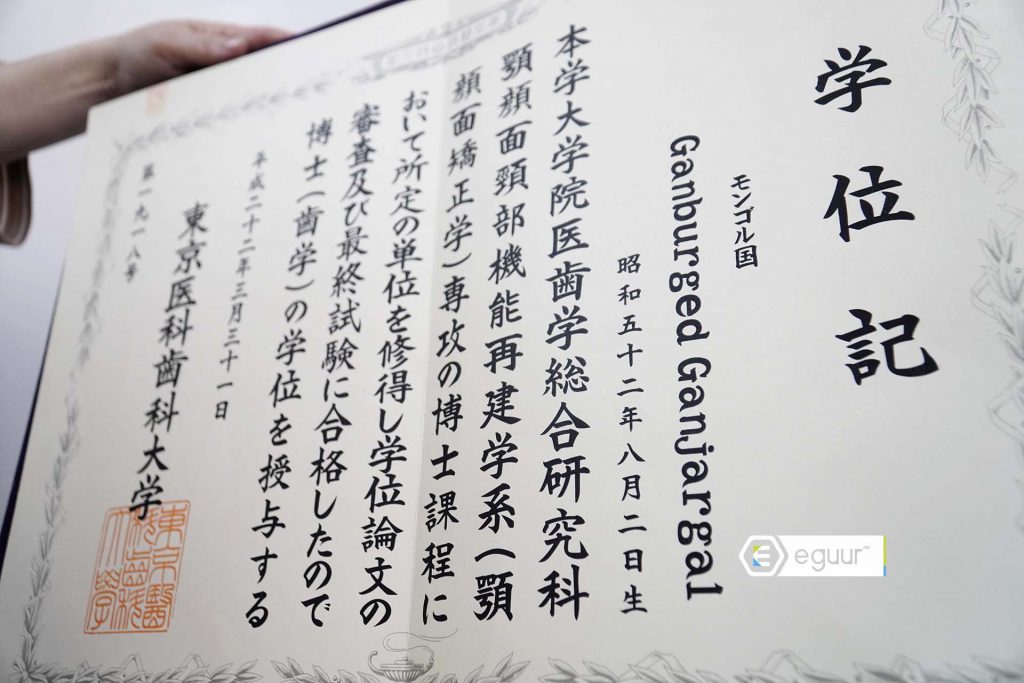 学位記
モンゴル国
Ganburged Ganjargal
昭和五十二年八月二日生
本学大学院医歯学総合研究科
顎顔面頸部機能再建学系(顎
顔面矯正学)専攻の博士課程に
おいて所定の単位を修得し学位論文の
審査及び最終試験に合格したので
博士(歯学)の学位を授与する
平成二十二年三月三十一日
東京医科歯科大学
第一九一八号
東京醫
科齒科
大學
eguur™